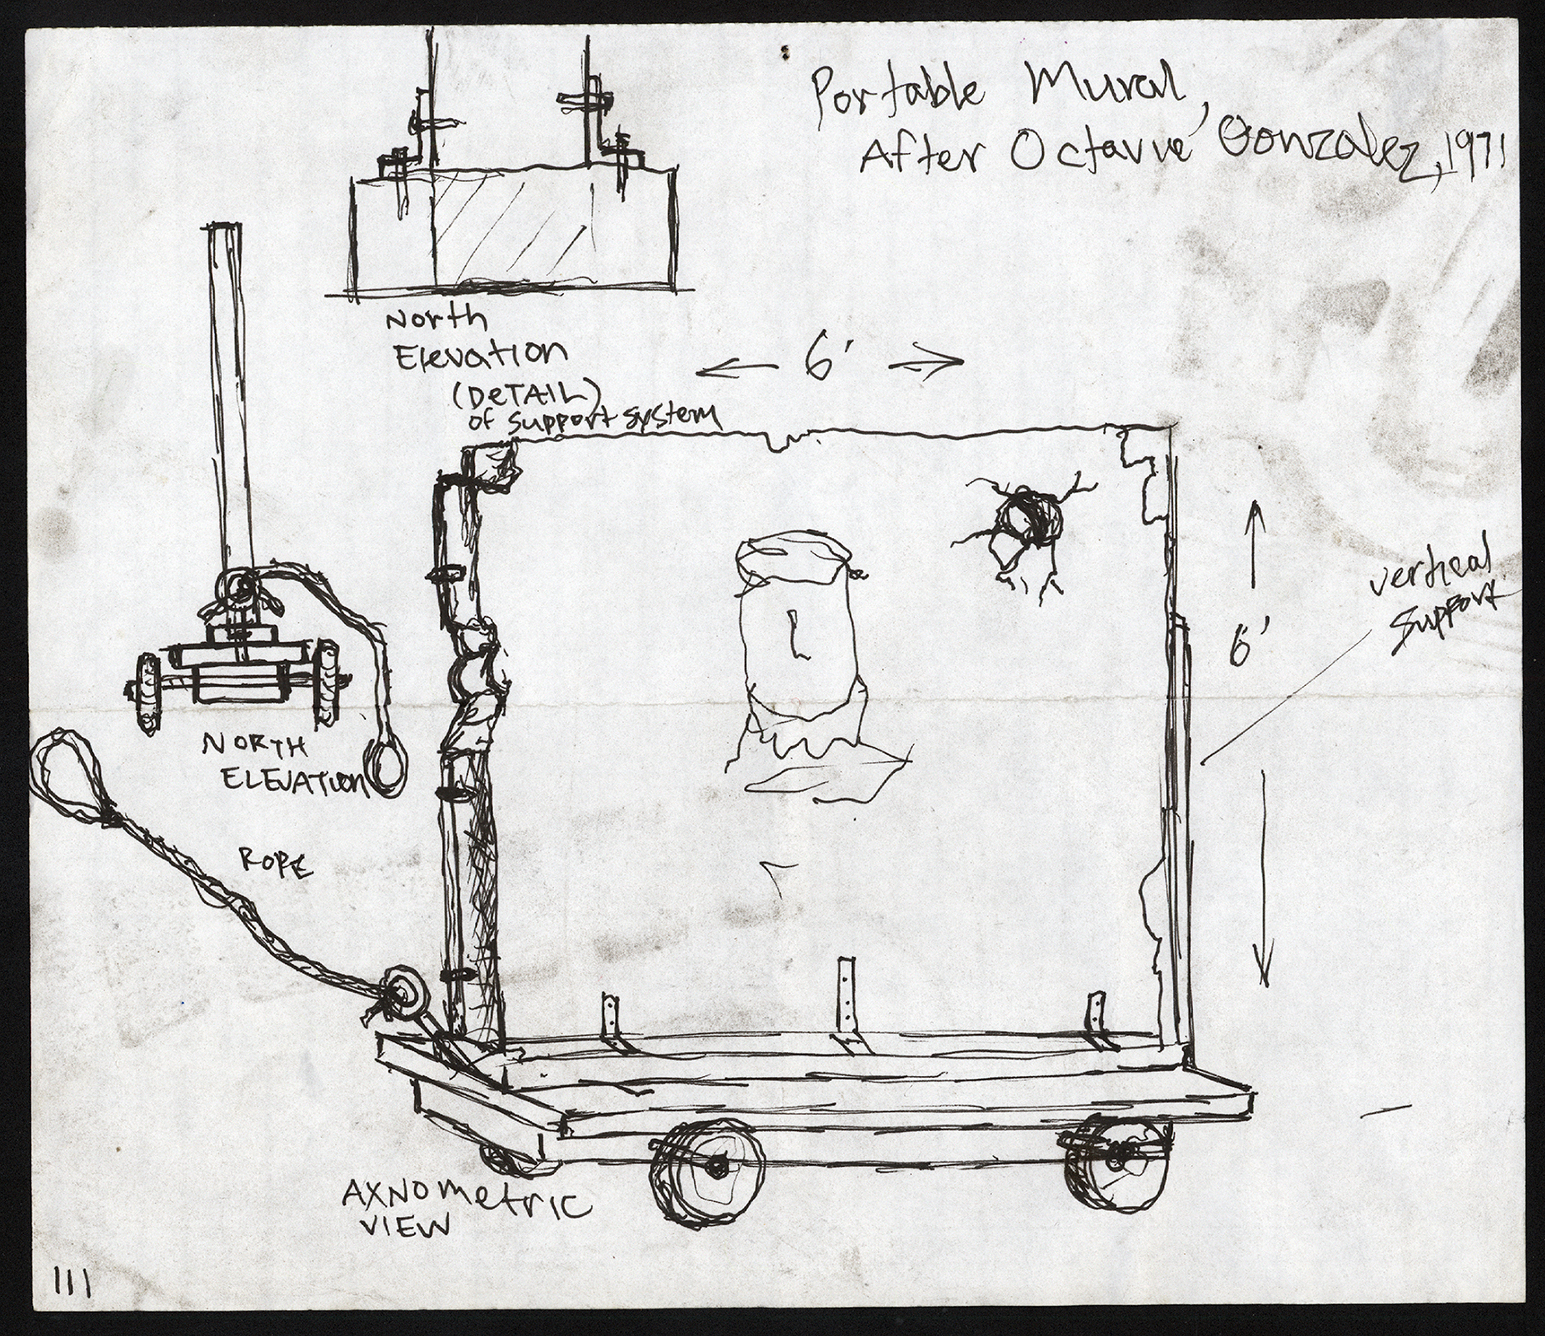 Portable Mural,
After Octavio Gonzalez, 1971
North
Elevation
(DeTAIL)
of support system
← 6' →
vertical
support
6'
NORTH
ELEVATION
ROPE
L
AXNOmetric
VIEW
111